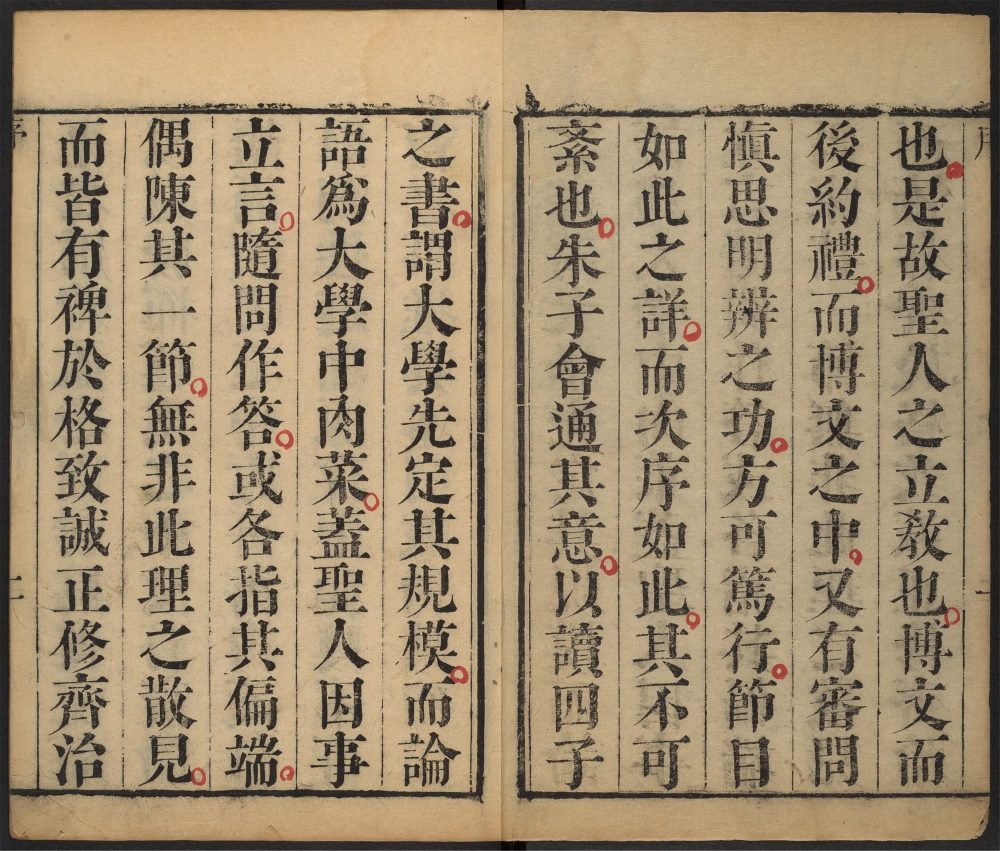 也是故聖人之立敎也博文而
後約禮而博文之中又有審問
愼思明辨之功方可篤行節目
如此之詳而次序如此其不可
紊也朱子會通其意以讀四子
之書謂大學先定其規模而論
語爲大學中肉菜蓋聖人因事
立言隨問作答或各指其偏端
偶陳其一節無非此理之散見
而皆有裨於格致誠正修齊治